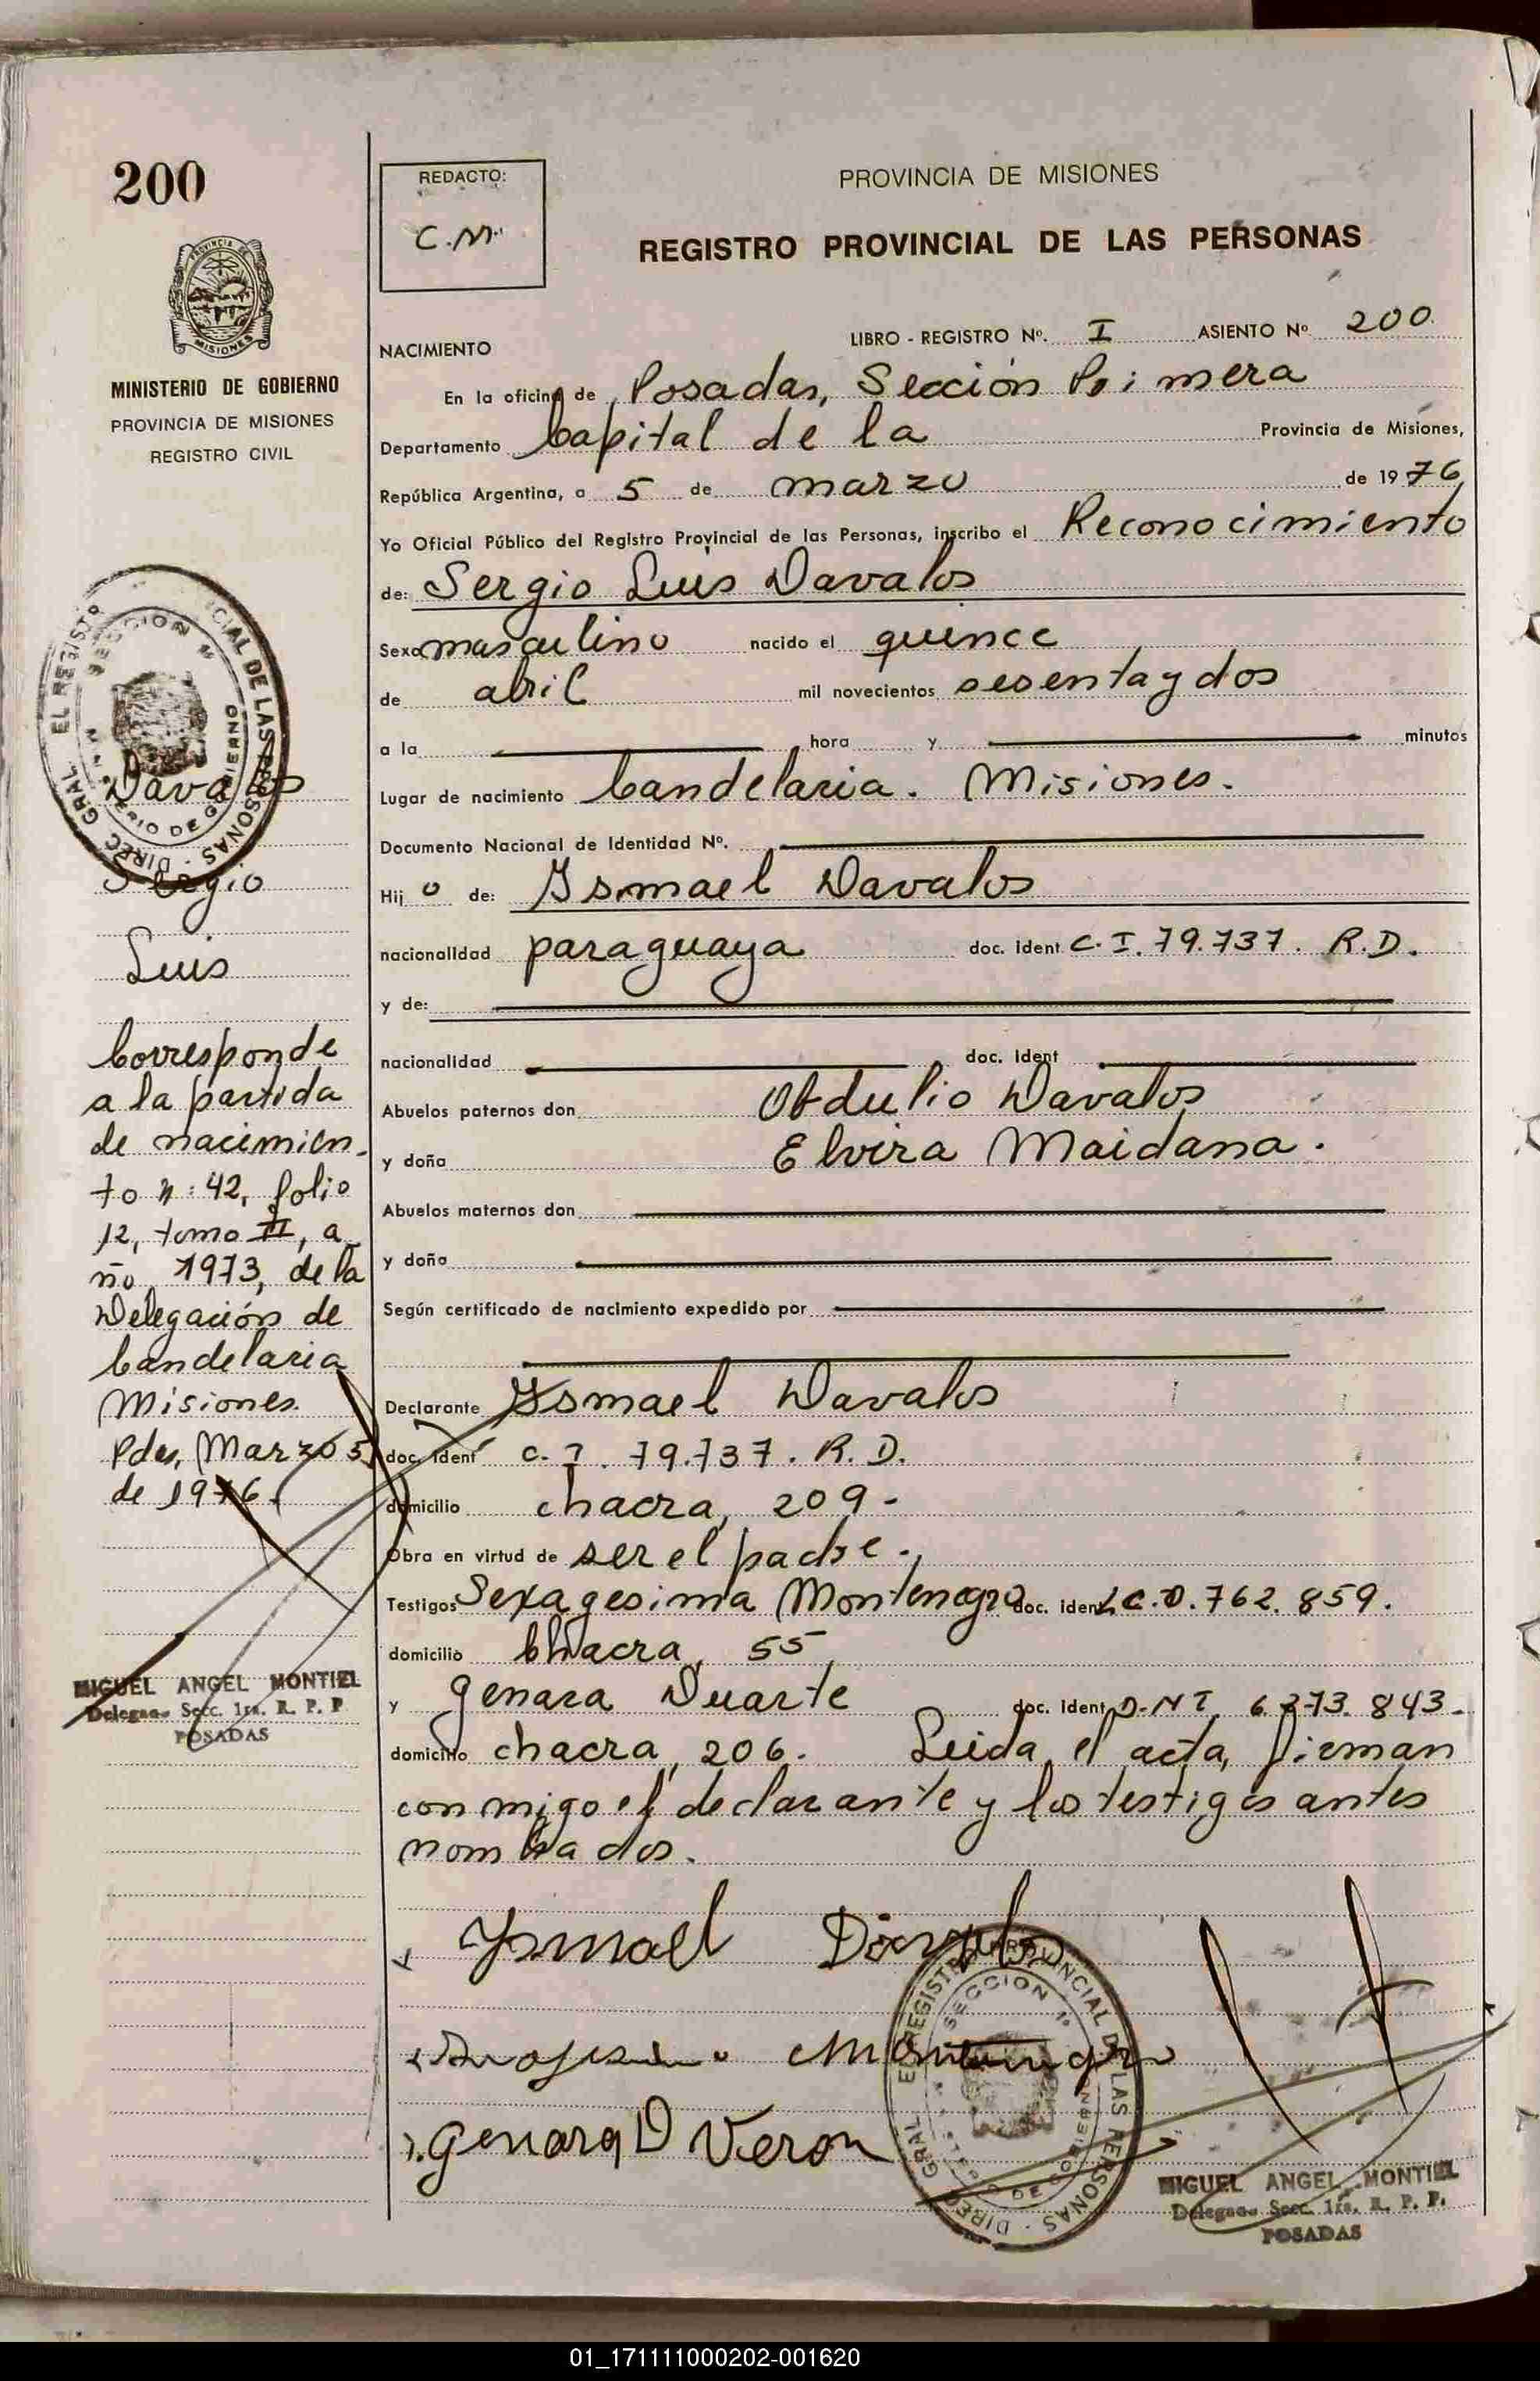 200
PROVINCIA DE MISIONES
MINISTERIO DE GOBIERNO
PROVINCIA DE MISIONES
REGISTRO CIVIL
Davalos
Sergio
Luis
Corresponde
a la partida
de nacimien-
to n: 42, folio
12, tomo II, a
ño 1973, de la
Delegación de
Candelaria
Misiones.
Pdas, Marzo 5
de 1976.
MIGUEL ANGEL MONTIEL
Delegado Secc. 1ra. R. P. P
POSADAS
REDACTO:
C.M.
PROVINCIA DE MISIONES
REGISTRO PROVINCIAL DE LAS PERSONAS
NACIMIENTO
LIBRO - REGISTRO Nº. I ASIENTO Nº 200
En la oficina de Posadas, Sección Primera
Departamento Capital de la Provincia de Misiones,
República Argentina, a 5 de marzo de 1976
Yo Oficial Público del Registro Provincial de las Personas, inscribo el Reconocimiento
de: Sergio Luis Davalos
Sexo masculino nacido el quince
de abril mil novecientos sesenta y dos
a la hora y minutos
Lugar de nacimiento Candelaria. Misiones.
Documento Nacional de Identidad Nº.
Hijo de: Ysmael Davalos
nacionalidad paraguaya doc. ident C.I. 79.737. R.D.
y de:
nacionalidad doc. ident
Abuelos paternos don Obdulio Davalos
y doña Elvira Maidana.
Abuelos maternos don
y doña
Según certificado de nacimiento expedido por
Declarante Ysmael Davalos
doc. ident C.I. 79.737. R.D.
domicilio chacra, 209-
Obra en virtud de ser el padre.,
Testigos Sexagesima Montenegro doc. ident L.C.0.762.859.
domicilio Chacra, 55,
y Genara Duarte doc. ident D.N.I. 6.273.843.
domicilio chacra, 206. Leida el acta, firman
conmigo el declarante y los testigos antes
nombrados.
Ysmael Davalos
Montenegro
Genara D Veron
DIREC. GRAL. EL REGISTRO PROVINCIAL DE LAS PERSONAS
SECCION 1ª
MIGUEL ANGEL MONTIEL
Delegado Secc. 1ra. R. P. P.
POSADAS
01_171111000202-001620